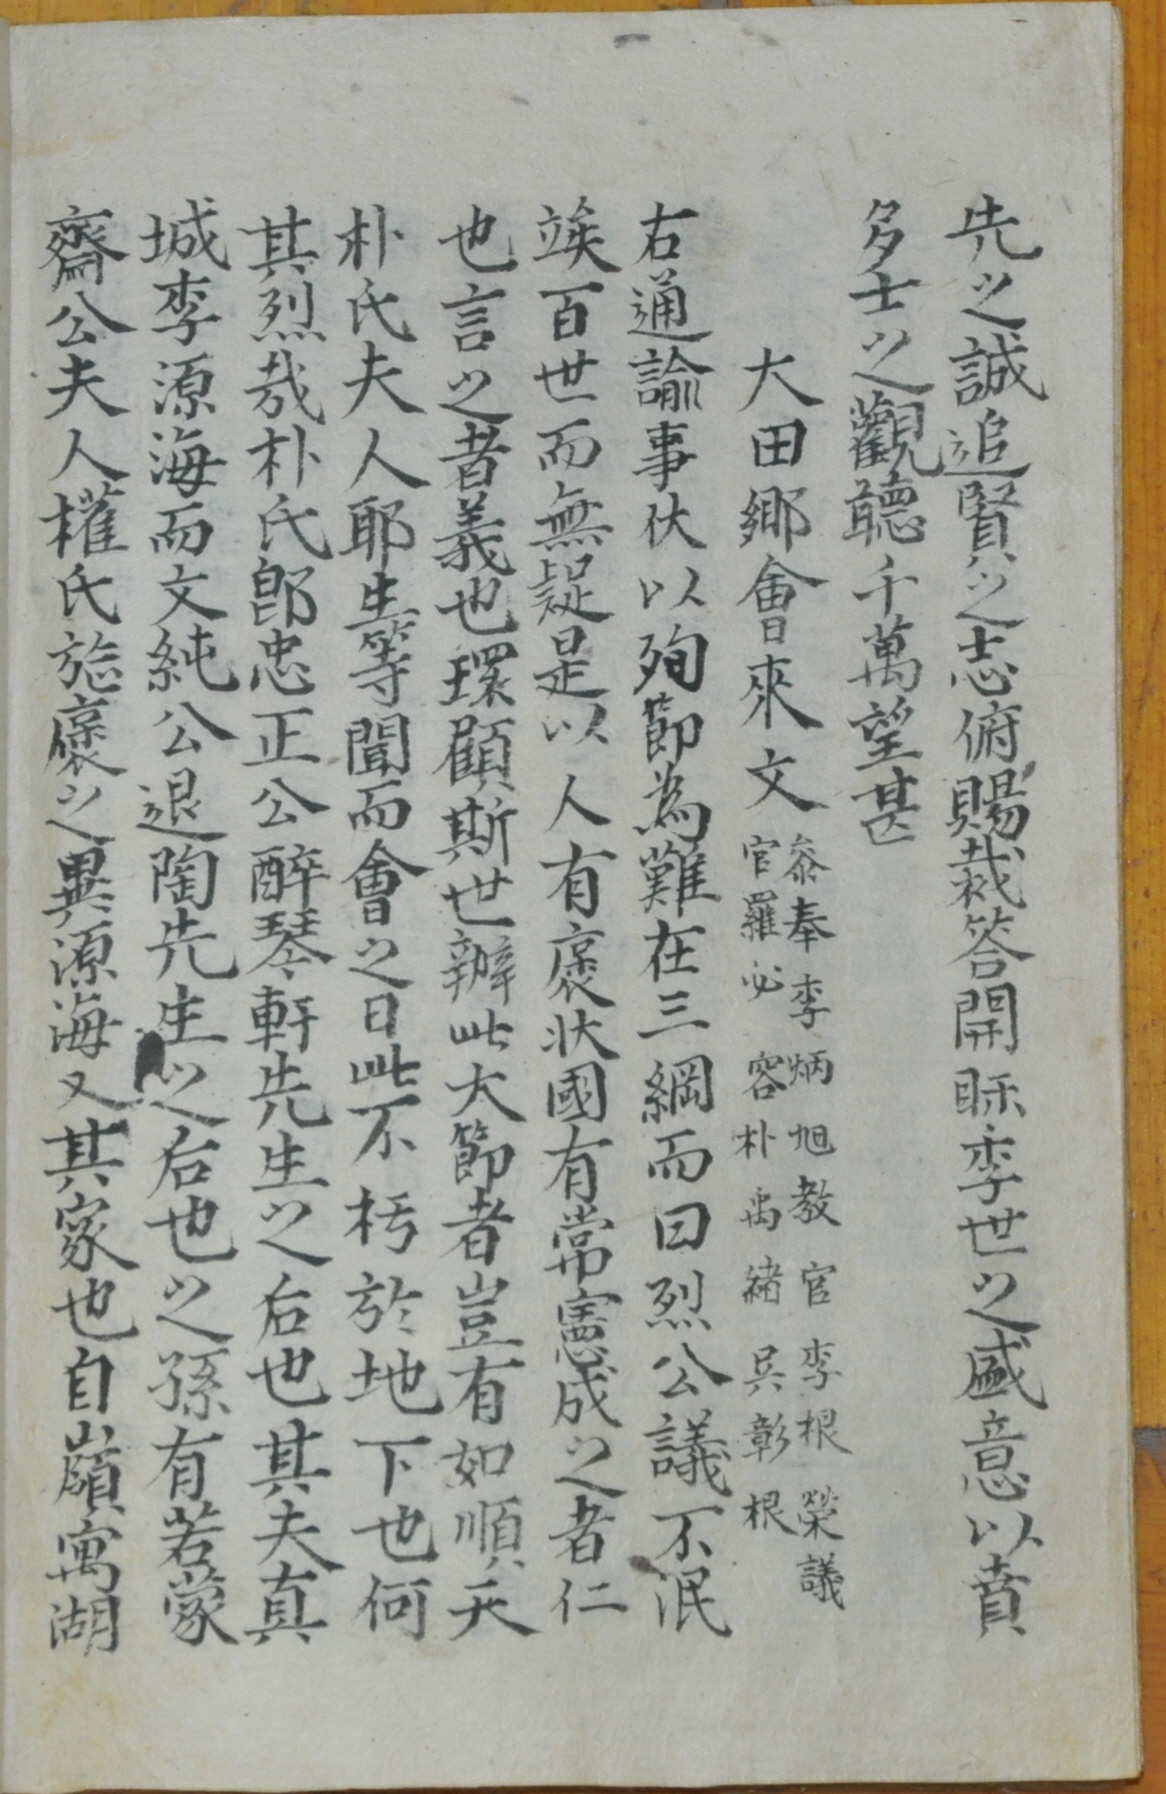 先之誠追賢之志俯賜裁答開眎季世之盛意以賁
多士之觀聽千萬望甚
大田鄉會來文
叅奉李炳旭教官李根榮議
官羅必容朴禹緖吳彰根
右通諭事伏以殉節為難在三綱而曰烈公議不泯
竢百世而無疑是以人有褒狀國有常憲成之者仁
也言之者義也環顧斯世辦此大節者豈有如順天
朴氏夫人耶生等聞而會之日此不朽於地下也何
其烈哉朴氏卽忠正公醉琴軒先生之后也其夫真
城李源海而文純公退陶先生之后也之孫有若蒙
齋公夫人權氏旌褒之異源海又其家也自嶺寓湖